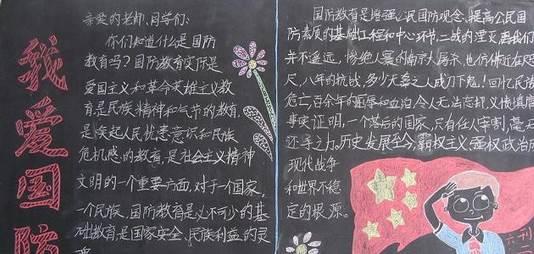 我爱国防
亲爱的老师、同学们:
你们知道什么是国防
教育吗?国防教育实质是
爱国主义和革命英雄主义教
育,是民族精神和气节的教育,
是唤起人民忧患意识和民族
危机感的教育,是社会主义精神
文明的一个重要方面,对于一个国家,
一个民族,国防教育是必不可少的基
础教育,是国家安全、民族利益的灵
国防教育是增强公民国防观念、提高公民国
防素质的基础工程和中心环节,二战的湮灭离我们
并不遥远,惨绝人寰的南京大屠杀,也仿佛近在咫
尺,八年的抗战,多少无辜之人成刀下鬼!回忆民族
危亡百余年的屈辱和血泪,令人无法忘
事实证明,一个落后的国家,只有任人宰割,毫无
还手之力,历史发展至今,霸权主义、强权政治所
现代战争
和世界不稳
定的根源。
六